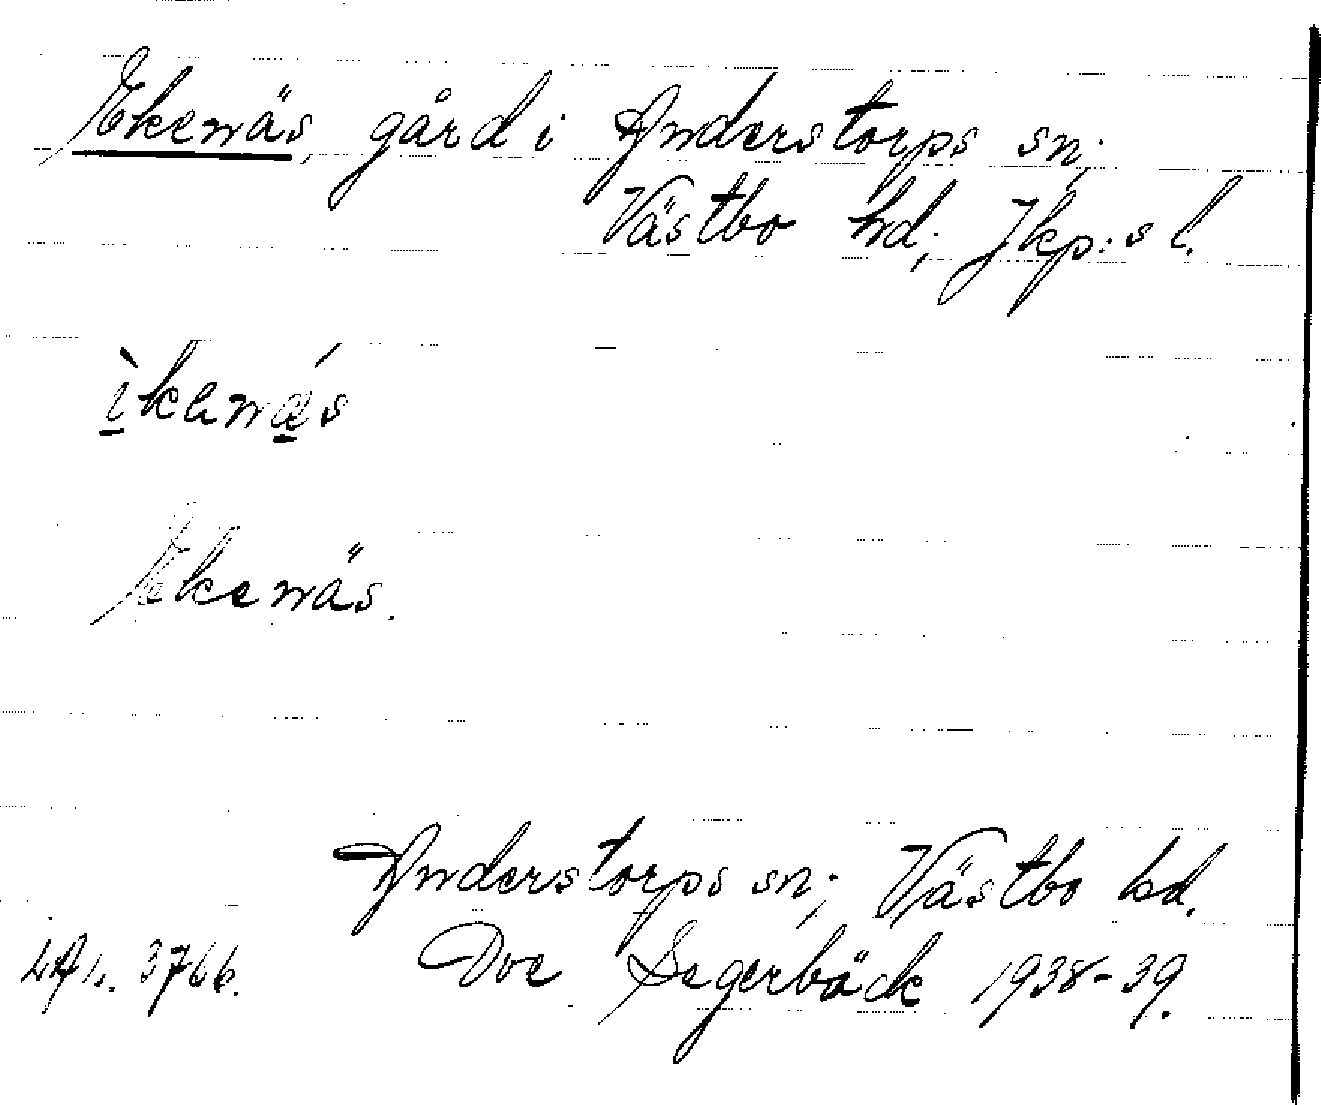 Ekenäs, gård i Anderstorps sn;
Västbo hd; Jkp:s l.
Ekenäs.
Anderstorps sn; Västbo hd.
3766. Segerbäck 1938-39.